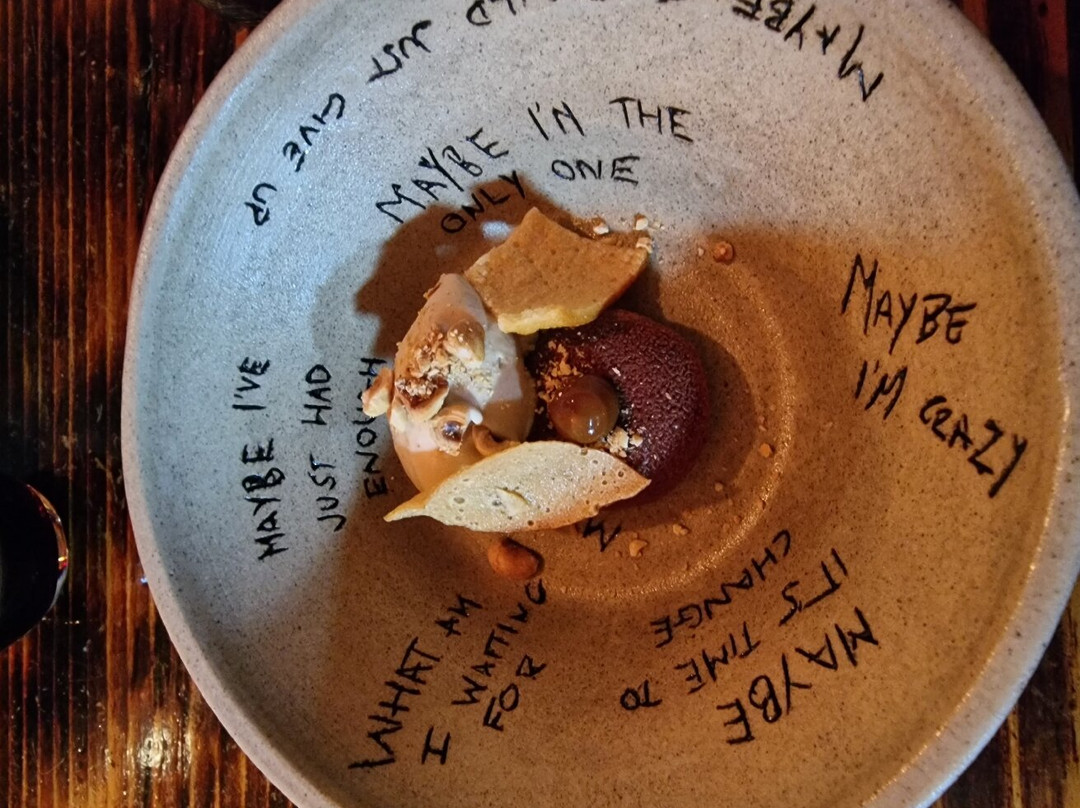 MAYBE
JUST
GIVE UP
MAYBE I'M THE
ONLY ONE
MAYBE
I'M CRAZY
MAYBE
IT'S TIME TO
CHANGE
WHAT AM
I WAITING
FOR
MAYBE I'VE
JUST HAD
ENOUGH